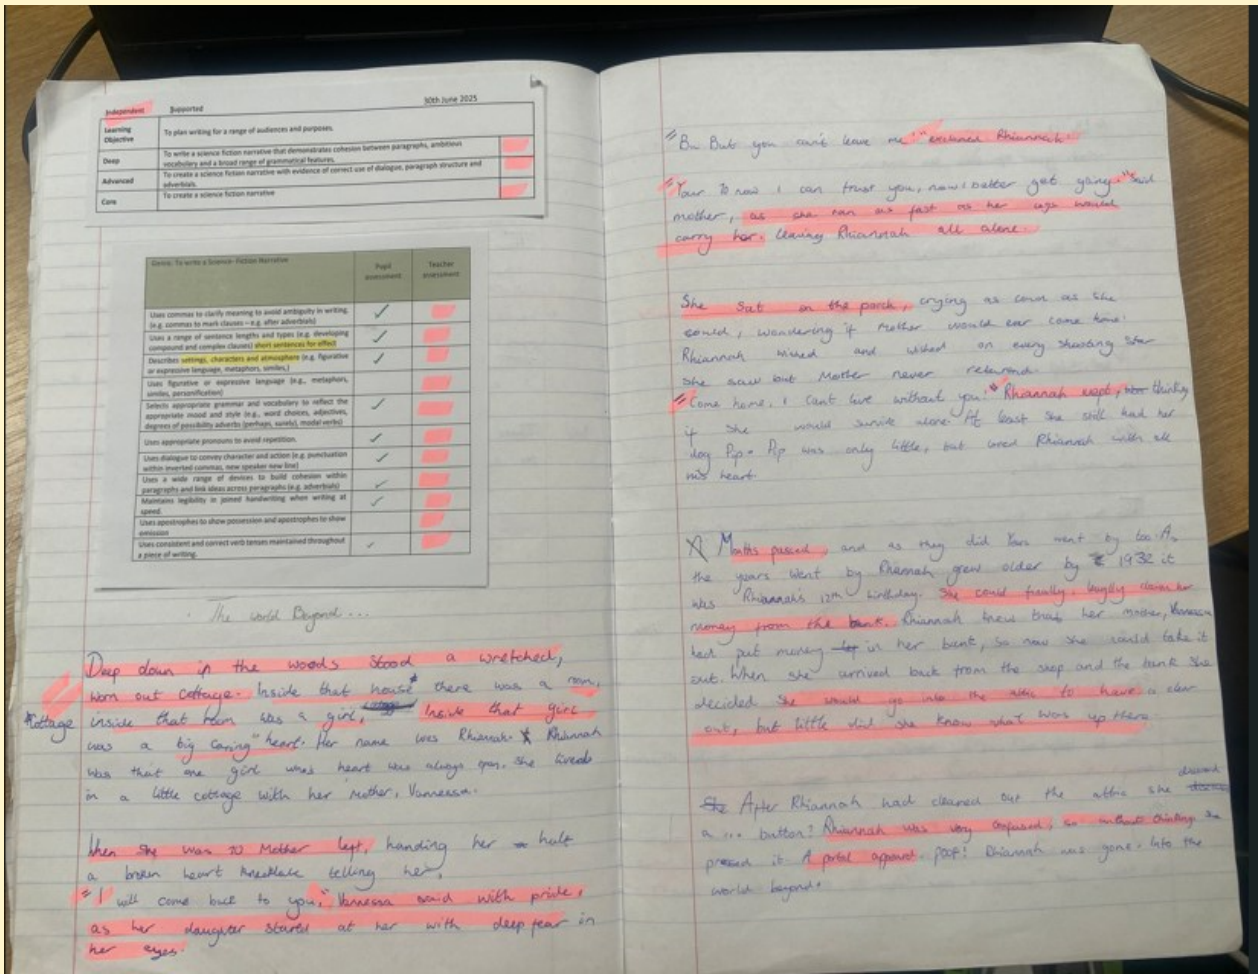 Independent Supported 30th June 2025
Learning Objective To plan writing for a range of audiences and purposes.
Deep To write a science fiction narrative that demonstrates cohesion between paragraphs, ambitious
vocabulary and a broad range of grammatical features.
Advanced To create a science fiction narrative with evidence of correct use of dialogue, paragraph structure and
adverbials.
Core To create a science fiction narrative
Genre: To write a Science- Fiction Narrative Pupil assessment Teacher assessment
Uses commas to clarify meaning to avoid ambiguity in writing.
(e.g. commas to mark clauses – e.g. after adverbials)
Uses a range of sentence lengths and types (e.g. developing
compound and complex clauses) short sentences for effect
Describes settings, characters and atmosphere (e.g. figurative
or expressive language, metaphors, similes,)
Uses figurative or expressive language (e.g., metaphors,
similes, personification)
Selects appropriate grammar and vocabulary to reflect the
appropriate mood and style (e.g., word choices, adjectives,
degrees of possibility adverbs (perhaps, surely), modal verbs)
Uses appropriate pronouns to avoid repetition.
Uses dialogue to convey character and action (e.g. punctuation
within inverted commas, new speaker new line)
Uses a wide range of devices to build cohesion within
paragraphs and link ideas across paragraphs (e.g. adverbials)
Maintains legibility in joined handwriting when writing at
speed.
Uses apostrophes to show possession and apostrophes to show
omission
Uses consistent and correct verb tenses maintained throughout
a piece of writing.
The World Beyond...
Deep down in the woods stood a wretched,
worn out cottage. Inside that house* there was a room,
*cottage inside that room was a girl, Inside that girl
was a big caring heart. Her name was Rhiannah. Rhiannah
was that one girl whos heart was always open. She lived
in a little cottage with her Mother, Vannessa.
When she was 10 Mother left, handing her half
a broken heart necklace telling her,
"I will come back to you," Vannessa said with pride,
as her daughter stared at her with deep fear in
her eyes.
"Bu But you can't leave me" exclaimed Rhiannah.
"Your 10 now I can trust you, now I better get going." said
mother, as she ran as fast as her legs would
carry her. leaving Rhiannah all alone.
She sat on the porch, crying as loud as she
could, wondering if Mother would ever come home.
Rhiannah wished and wished on every shooting star
she saw but Mother never returned.
"Come home, I cant live without you." Rhiannah wept, thinking
if she would survive alone. At least she still had her
dog Pip. Pip was only little, but loved Rhiannah with all
his heart.
Months passed, and as they did Years went by too. As
the years went by Rhiannah grew older by 1932 it
was Rhiannah's 12th birthday. She could finally, legally claim her
money from the bank. Rhiannah knew that her mother, Vannessa
had put money in her bank, so now she could take it
out. When she arrived back from the shop and the bank she
decided she would go into the attic to have a clear
out, but little did she know what was up there.
She After Rhiannah had cleaned out the attic she
a ... button? Rhiannah was very confused, so without thinking she
pressed it. A portal Poof! Rhiannah was gone. Into the
world beyond.